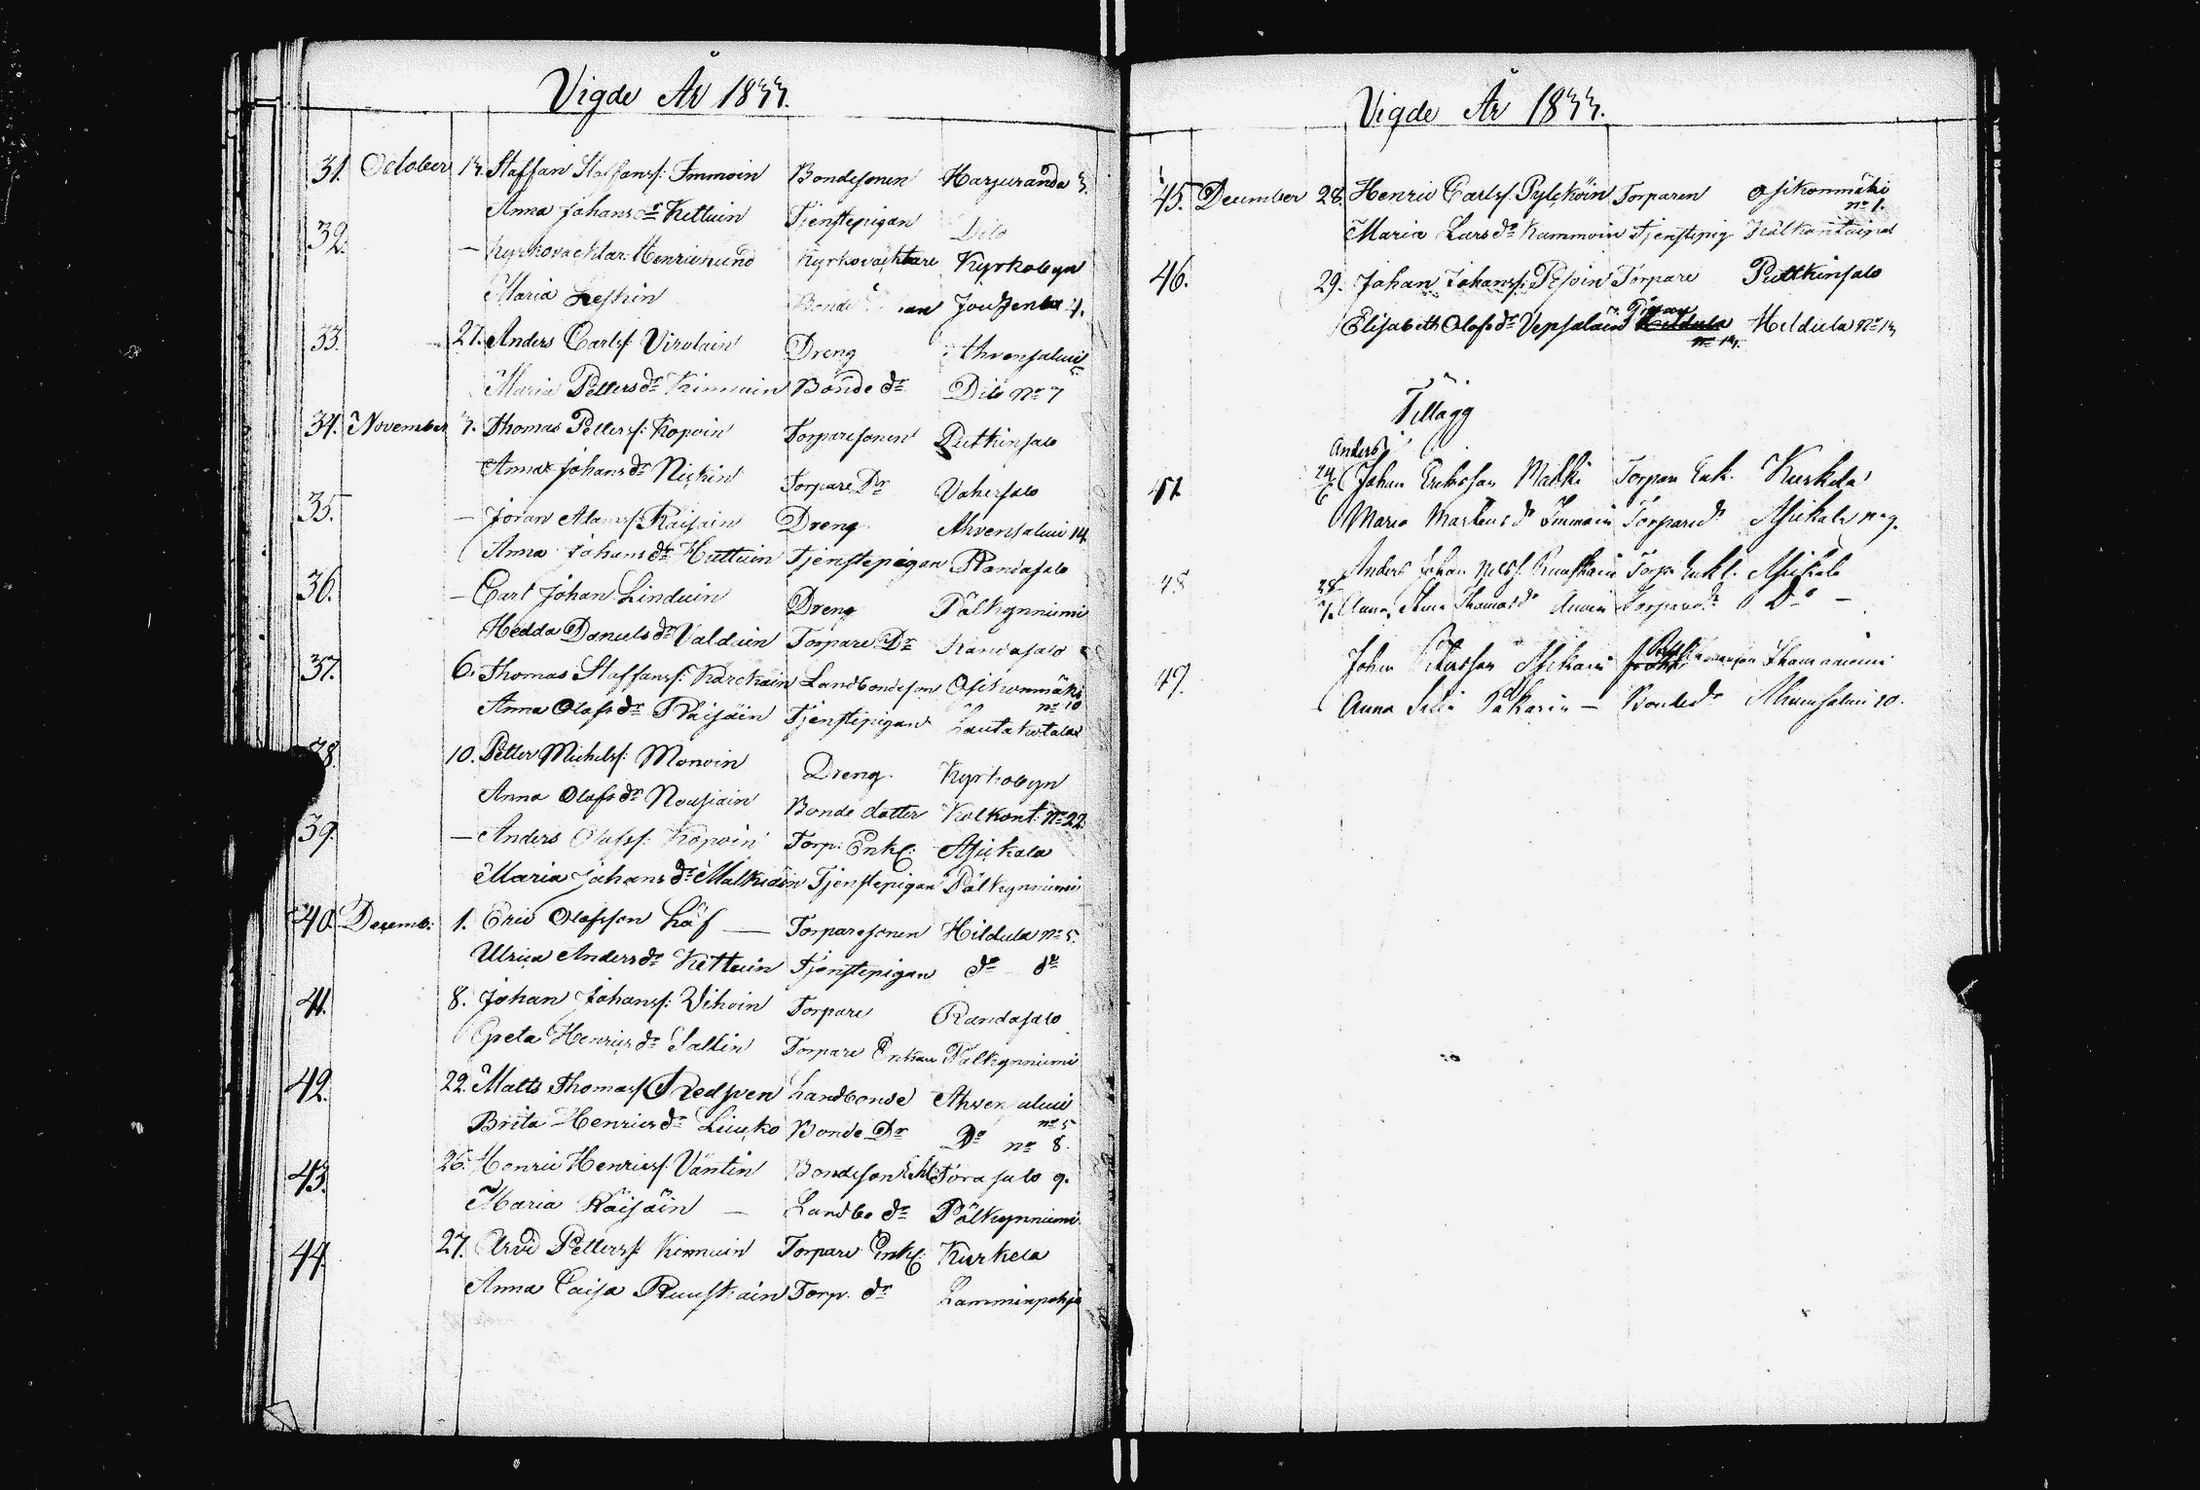 Vigde År 1833.
31. October 13. Staffan Staffanss: Immoin Bondesonen Harjuranda 3.
Anna Johans dr Kettuin Tjenstepigan Dito
32. — Kyrkovachtar: Henric Kyrkovachtare Kyrkobyn
Maria Leskin Bonde Jouhenla 4.
33. 27. Anders Carlss: Virolain Dreng Ahvensalmi 5
Maria Petters dr Kinnuin Bonde dr Dito No 7
34. November 3. Thomas Petterss: Kopoin Torparesonen Putkinsalo
Anna Johans dr Nickin Torpare Dr Vahersalo
35. — Jöran Adamss: Räisäin Dreng Ahvensalmi 14
Anna Johans dr Huttuin Tjenstepigan Randasalo
36. — Carl Johan Linduin Dreng Pälkynniemi
Hedda Daniels dr Valduin Torpare Dr Randasalo
37. 6. Thomas Staffanss: Karckäin Landbondeson Osikonmäki No 10
Anna Olafs dr Räisäin Tjenstepigan Lautakotala
38. 10. Petter Michelss: Monoin Dreng Kyrkobyn
Anna Olofs dr Nousiain Bonde dotter Kolkont. No 22
39. — Anders Olofss: Kopoin Torp: Enkl: Asickala
Maria Johans dr Malkiäin Tjenstepigan Pälkynniemi
40. Decemb: 1. Eric Olofsson Löf — Torparesonen Hildula No 5.
Ulrica Anders dr Kettuin Tjenstepigan do do
41. 8. Johan Johanss: Vihoin Torpare Randasalo
Greta Henrics dr Sallin Torpare Enkan Pälkynniemi
42. 22. Matts Thomass: Redsven Landbonde Ahvensalmi No 5
Brita Henrics dr Liucko Bonde Dr Do No 8.
43. 26. Henric Henricss: Väntin Bondeson Enkl Torasalo 9.
Maria Räisäin — Landbo dr Pälkynniemi
44. 27. Arvid Petterss: Kinnuin Torpare Enkl: Kurkela
Anna Caisa Ruuskain Torp. dr Lamminpohja
Vigde År 1833.
45. December 28. Henric Carlss. Pylcköin Torparen Osikonmäki No 1.
Maria Lars dr Kammoin Tjenstepig Kälkäntaipal
46. 29. Johan Johanss: Pesoin Torpare Putkinsalo
Elisabeth Olofs dr Vepsäläin Pigan Hildula No 13
Tillägg
Anders
47. 24/6 Johan Eriksson Malki Torpare Enk. Kurkela
Maria Martens dr Immoin Torpare dr Asickala No 9.
48 28/7. Anders Johan Ruuskain Torp. Enkl. Asickala
Anna Thomas dr Auvin Torpare dr Do —
49. Johan Petersson Asikain
Anna Pakarin — Bonde dr Ahvensalmi 10.